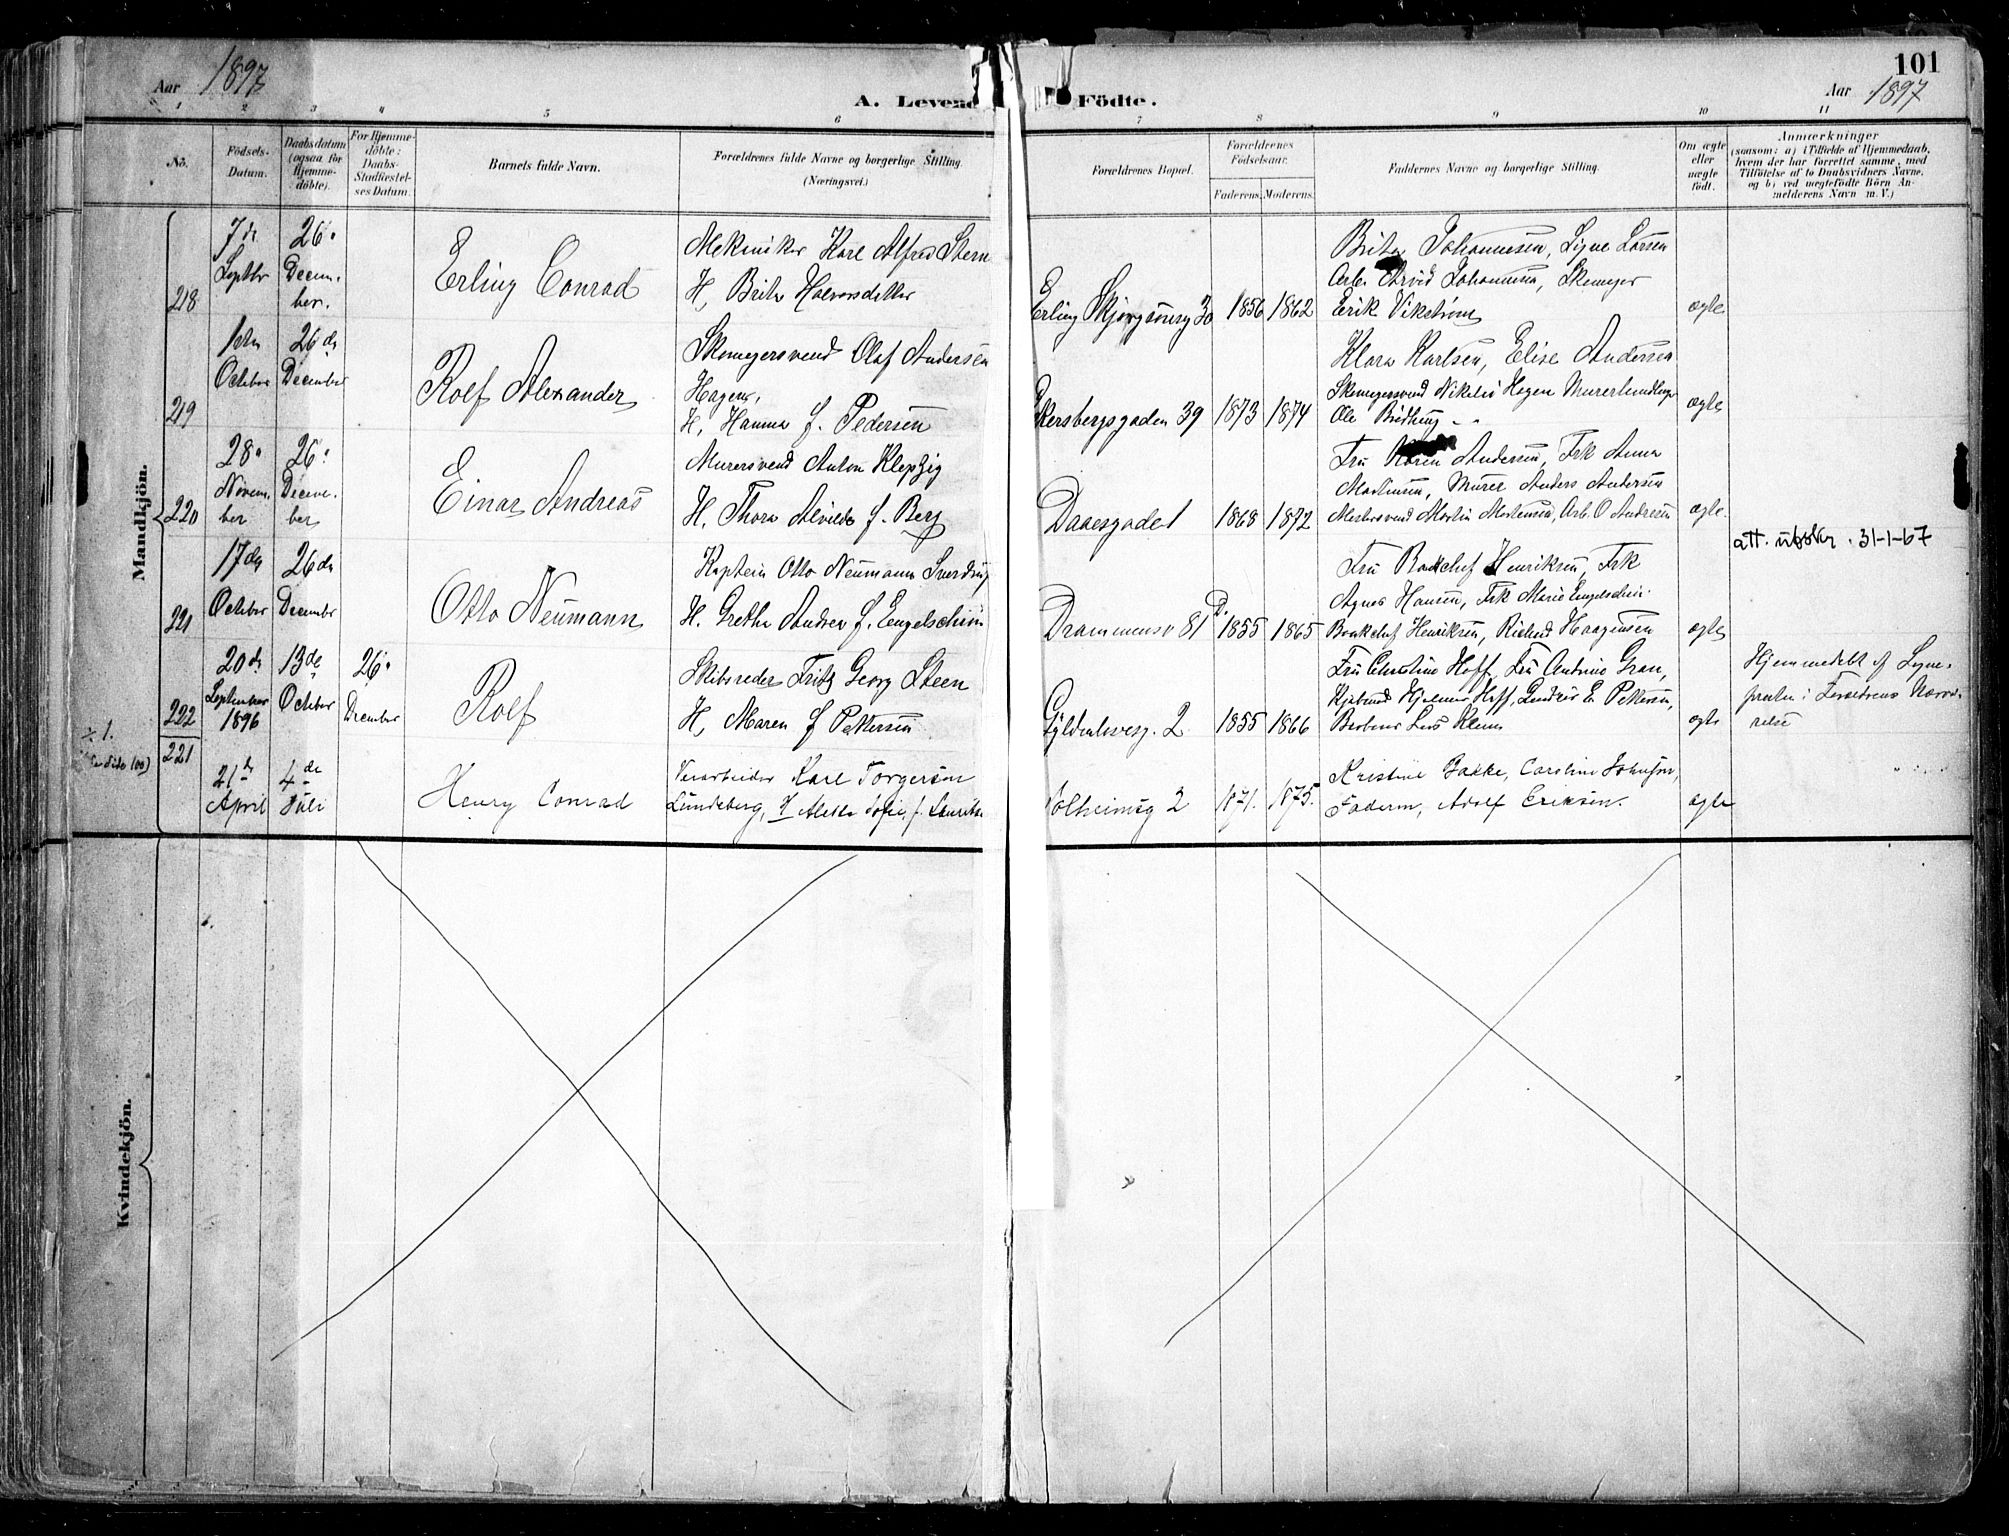 101
Aar 1897
A. Levend
Födte.
Aar 1897
1 2 3 4 5 6 7 8 9 10 11
No.
Födsels-
Datum.
Daabsdatum
(ogsaa for
Hjemme-
döbte).
For Hjemme-
döbte:
Daabs-
Stadfæstel-
ses Datum.
Barnets fulde Navn.
Forældrenes fulde Navne og borgerlige Stilling.
(Næringsvei.)
Forældrenes Bopæl.
Forældrenes
Födselsaar.
Faderens. Moderens.
Faddernes Navne og borgerlige Stilling.
Om ægte
eller
uægte
födt.
Anmærkninger
(saasom: a) i Tilfælde af Hjemmedaab,
hvem der har forrettet samme, med
Tilföielse af to Daabsvidners Navne,
og b) ved uægtefödte Börn An-
melderens Navn m. V.)
Mandkjön.
218
7de
Septbr
26
Decem-
ber.
Erling Conrad
Mekaniker Karl Alfred Stern
H. Brita Halvorsdatter
Erling Skjalgsönsg 30
1856 1862
Brita Johannesen, Signe Larsen
Arb. Arvid Johannesen, Skomager
Erik Vikström
ægte
219
1ste
October
26de
December
Rolf Alexander
Skomagersvend Olaf Andersen
Hagen,
H. Hanna f. Pedersen
Eckersbergsgaden 39
1873 1874
Klara Karlsen, Elise Andersen
Skomagersvend Nikolai Hagen Murerhandlanger
Ole
ægte
220
28
Novem-
ber
26
Decem-
ber
Einar Andreas
Murersvend Anton Klepzig
H. Thora Alvilde f. Berg
Daaesgade 1
1868 1872
Fru Karen Andersen, Frk Anna
Mortensen, Murer Anders Andersen
Martin Mortensen, Arb. O Andresen
ægte.
att. utstkr. 31-1-67
221
17de
October
26de
December
Otto Neumann
Kaptein Otto Neumann Sverdrup
H. Grethe Andrea f. Engelschiön
Drammensv 81 D.
1855 1865
Fru Bankchef Henriksen, Frk
Agnes Hansen, Frk Marie Engelschiön
Bankchef Henriksen, Richard Haagensen
ægte
222
20de
September
1896
13de
October
26
December
Rolf
Skibsreder Fritz Georg Steen
H. Maren f Pettersen
Gyldenlövesg. 2
1855 1866
Fru Christine Hoff, Fru Andrine Gran,
Hjalmar Hoff, E. Pettersen,
Lars Klem
ægte
Hjemmedöbt af Sogne-
presten i Forældrenes Nærvæ-
relse
÷ 1.
(se side 100)
221
21de
April
4de
Juli
Henry Conrad
Karl Torgersen
Lundeberg, H Alette Sofie, f. Lauritsen
Solheimsg 2
1871. 1875.
Kristine Bakke, Caroline Johnsen,
Faderen, Adolf Eriksen.
ægte
Kvindekjön.